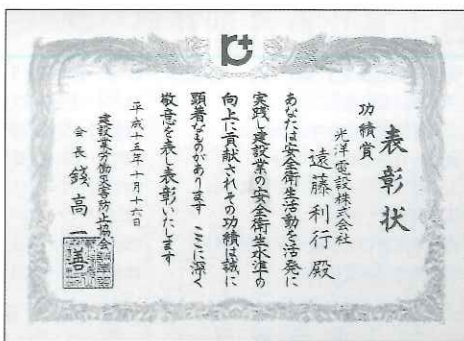 表彰状
功績賞
光洋電設株式会社
遠藤利行殿
あなたは安全衛生活動を活発に
実践し建設業の安全衛生水準の
向上に貢献されその功績は誠に
顕著なものがあります ここに深く
敬意を表し表彰いたします
平成十五年十月十六日
建設業労働災害防止協会
会長 錢高一善